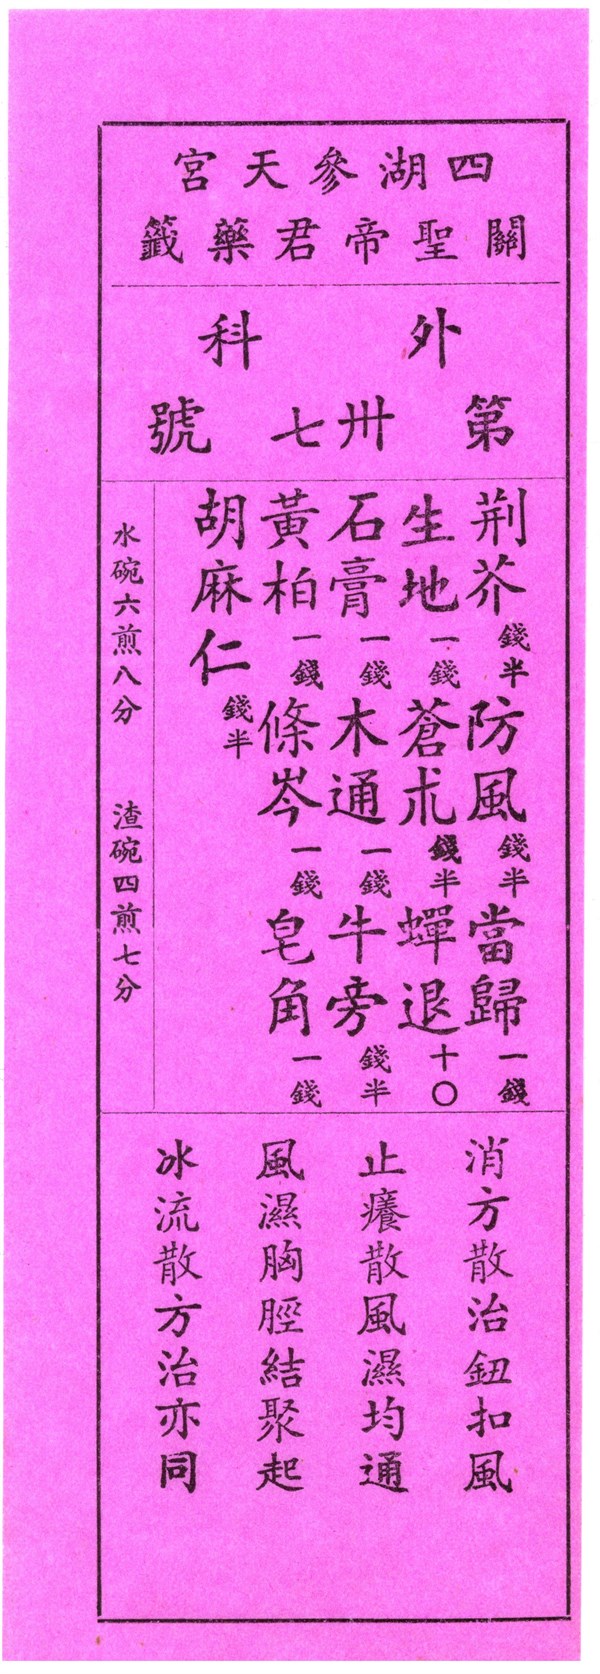 四湖參天宮
關聖帝君藥籤
外科
第卅七號
荆芥錢半防風錢半當歸一錢
生地一錢蒼朮錢半蟬退十〇
石膏一錢木通一錢牛旁錢半
黃柏一錢條岑一錢皂角一錢
胡麻仁錢半
水碗六煎八分 渣碗四煎七分
消方散治鈕扣風
止癢散風濕均通
風濕胸脛結聚起
冰流散方治亦同